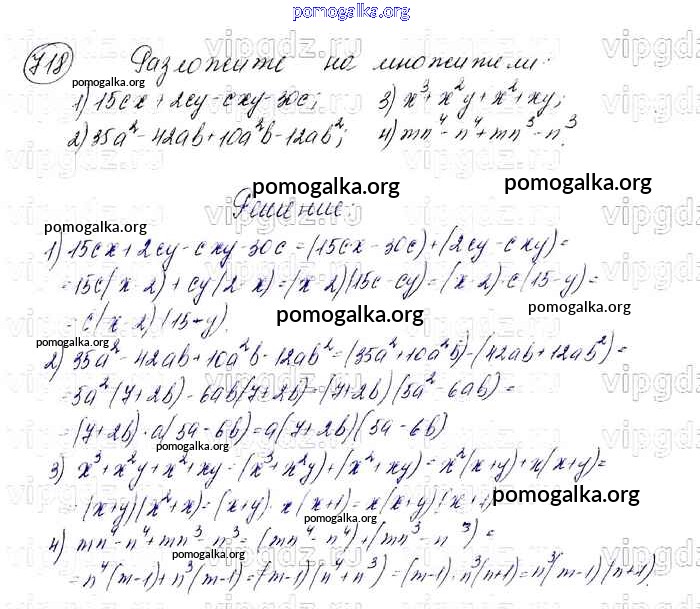 pomogalka.org
718 Разложите на множители:
pomogalka.org
1) 15cx + 2cy - cxy - 30c; 3) x³ + x²y + x² + xy;
2) 35a² - 42ab + 10a²b - 12ab²; 4) mn⁴ - n⁴ + mn³ - n³.
pomogalka.org pomogalka.org
Решение:
pomogalka.org
1) 15cx + 2cy - cxy - 30c = (15cx - 30c) + (2cy - cxy) =
= 15c(x - 2) + cy(2 - x) = (x - 2)(15c - cy) = (x - 2)·c(15 - y) =
pomogalka.org pomogalka.org
= c(x - 2)(15 - y).
pomogalka.org
2) 35a² - 42ab + 10a²b - 12ab² = (35a² + 10a²b) - (42ab + 12ab²) =
= 5a²(7 + 2b) - 6ab(7 + 2b) = (7 + 2b)(5a² - 6ab) =
= (7 + 2b)·a(5a - 6b) = a(7 + 2b)(5a - 6b)
pomogalka.org
3) x³ + x²y + x² + xy = (x³ + x²y) + (x² + xy) = x²(x + y) + x(x + y) =
= (x + y)(x² + x) = (x + y)·x(x + 1) = x(x + y)(x + 1)
pomogalka.org
pomogalka.org
4) mn⁴ - n⁴ + mn³ - n³ = (mn⁴ - n⁴) + (mn³ - n³) =
pomogalka.org
= n⁴(m - 1) + n³(m - 1) = (m - 1)(n⁴ + n³) = (m - 1)·n³(n + 1) = n³(m - 1)(n + 1)